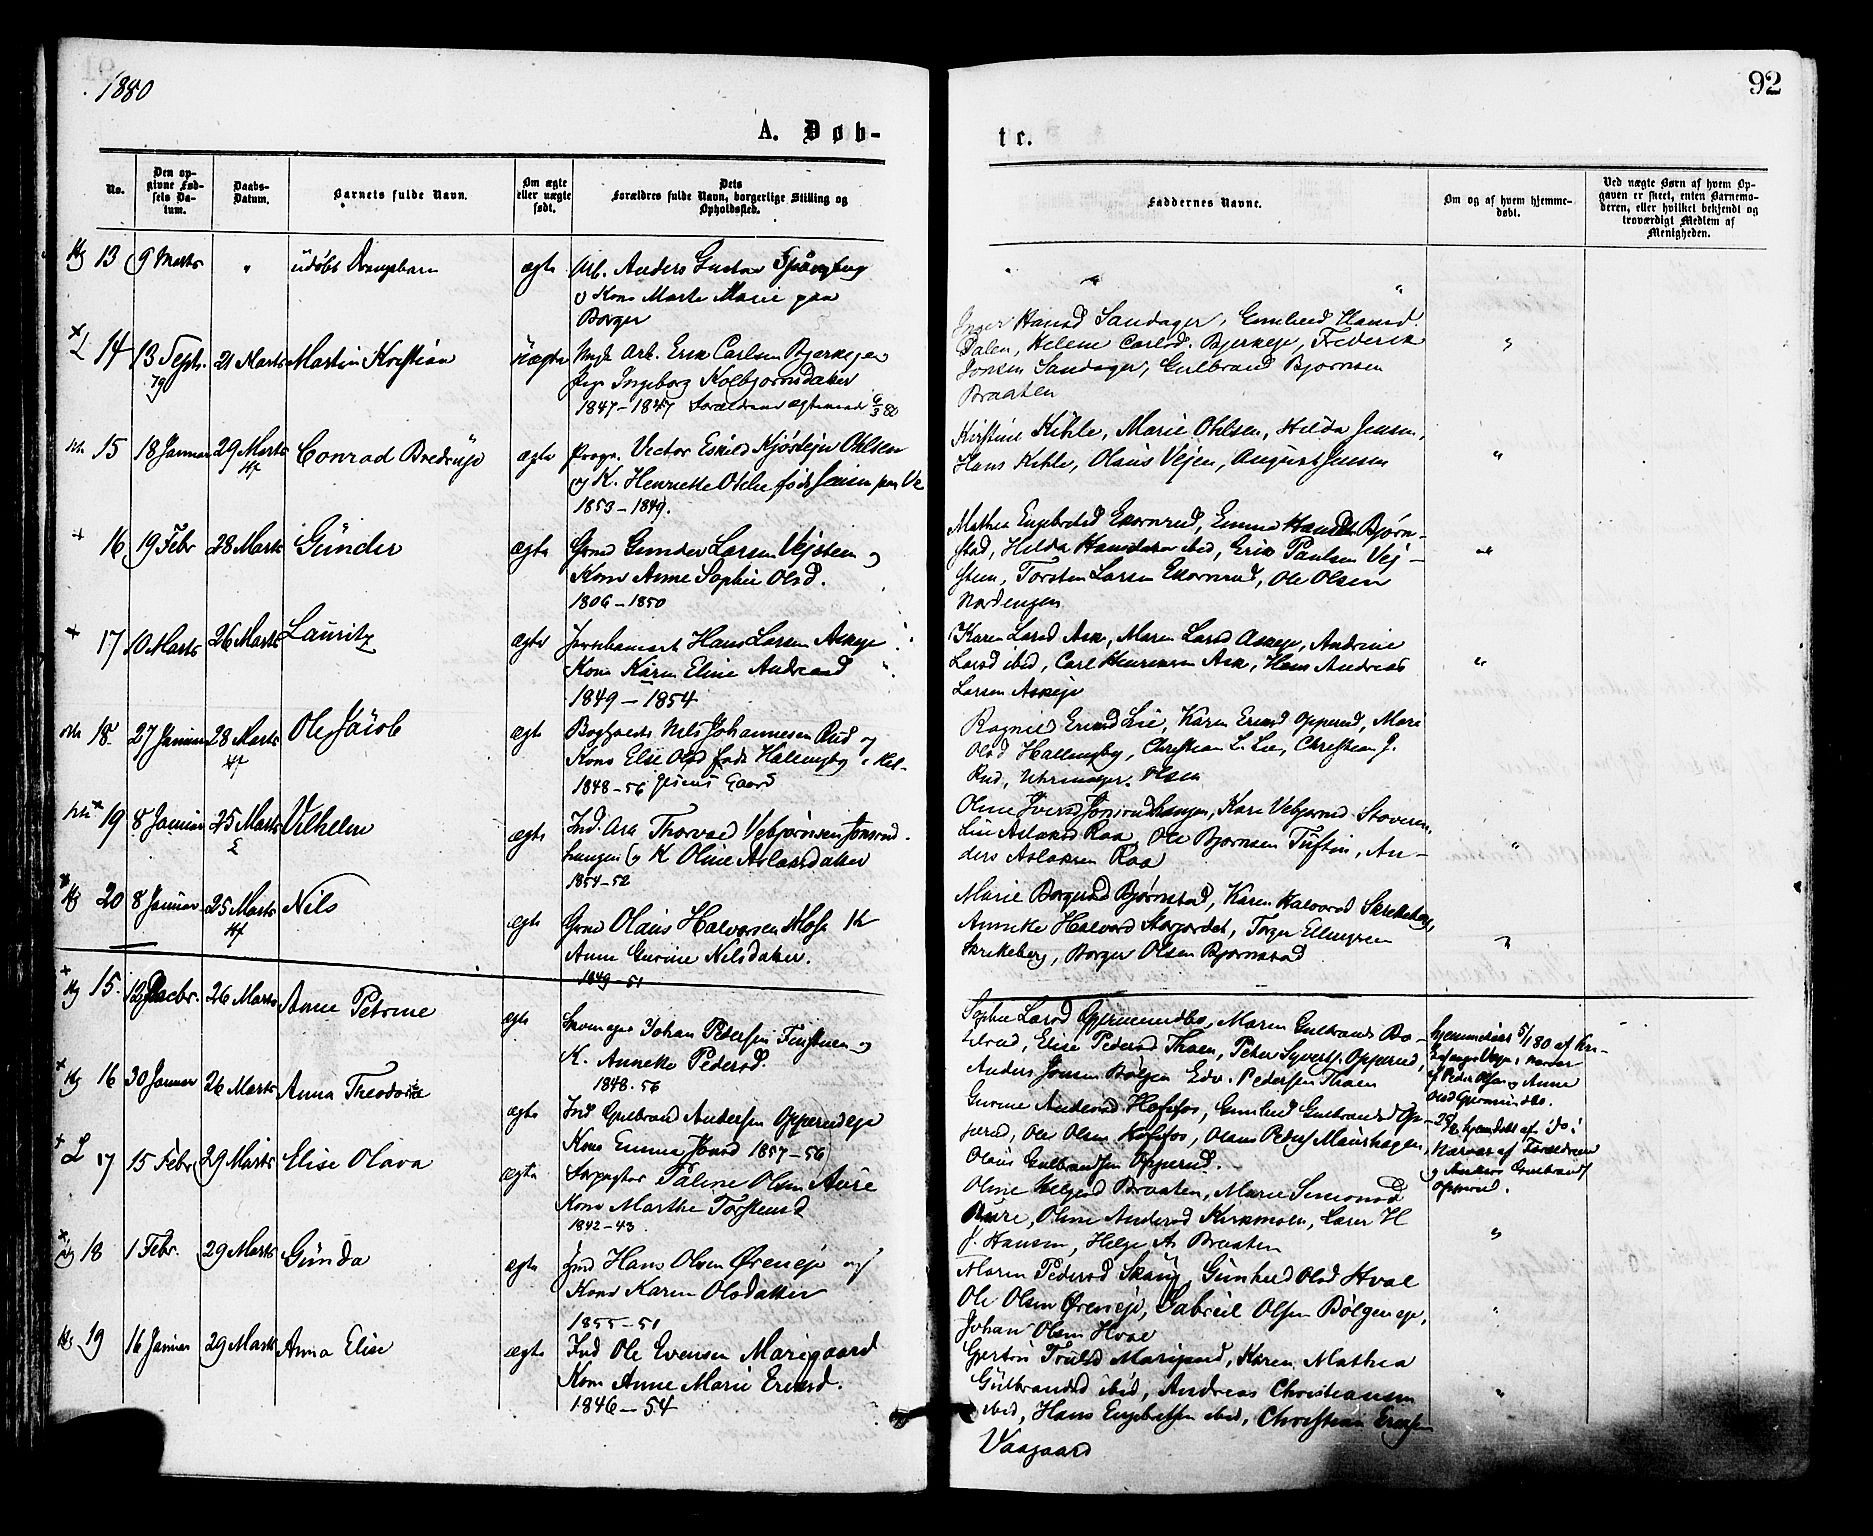 1880
92
A. Døb-
te.
No.
Den op-
givne Fød-
sels Da-
tum.
Daabs-
Datum.
Barnets fulde Navn.
Om ægte
eller nægte
født.
Dets
Forældres fulde Navn, borgerlige Stilling og
Opholdssted.
Faddernes Navne.
Om og af hvem hjemme-
døbt.
Ved nægte Børn af hvem Op-
gaven er skeet, enten Barnemo-
deren, eller hvilket bekjendt og
troværdigt Medlem af
Menigheden.
13 9 Marts " udøbt Drengebarn ægte Arb. Anders Gustav
og Kone Marte Marie paa
Borger
14 13 Septr. 79 21 Marts Martin Kristian uægte Ungk. Arb. Erik Carlsen Bjerkeje
Pige Ingeborg Kolbjørnsdatter
1847-1847 Forældrene ægteviede 6/3 80
Inger Hansd Sandager, Gunhild Hansd.
Dalen, Helene Carlsd. Bjerkeje, Frederik
Jonsen Sandager, Gulbrand Bjørnsen
Braaten
15 18 Januar 29 Marts Conrad Bredrup ægte Victor Eskild Ohlsen
og K. Henriette født Jensen paa Ve
1853-1849.
Kirstine Kihle, Marie Ohlsen, Hilda Jensen,
Hans Kihle, Olaus Vejen, August Jensen
16 19 Febr 28 Marts Günder ægte Grmd Gunder Larsen Vejsteen og
Kone Anne Sophie Olsd.
1806-1850
Mathea Engebretsd Ekornrud, Emma Hansd Bjørn-
stad, Hilda Hansdatter ibid, Erik Paulsen Vej-
steen, Torsten Larsen Ekornrud, Ole Olsen
Nordengen
17 10 Marts 26 Marts Lauritz ægte Hans Larsen Askeje
Kone Karen Eline Andreasd
1849-1854
Karen Larsd Ask, Maren Larsd Askeje, Andrine
Larsd ibid, Carl Henriksen Ask, Hans Andreas
Larsen Askeje
18 27 Januar 28 Marts Ole Jacob ægte Nils Johannesen Rud og
Kone Else Olsd født Hallingby
1848-56
Ragnild Eriksd Lie, Karen Eriksd Opperud, Mari
Olsd Hallingby, Christian L. Lie, Christian J.
Rud, Uhrmager Olsen
19 8 Januar 25 Marts Vilhelm ægte Ind. Arb. Thorvald Vebjørnsen Jonsrud-
haugen og K Oline Aslaksdatter
1854-52
Oline Iversd Jonsrudhaugen, Kari Vebjørnsd Staveren,
Lise Aslaksd Raa, Ole Bjørnsen Tuftin, An-
ders Aslaksen Raa
20 8 Januar 25 Marts Nils ægte Grmd Olaus Halvorsen Moe
Anne Gurine Nilsdatter.
1849-51
Marie Borgersd Bjørnstad, Karen Halvorsd Skrekeberg,
Anneke Halvorsd Storjordet, Torger Ellingsen
Skrekeberg, Borger Olsen Bjørnstad
15. 12 Decbr. 26 Marts Anne Petrine ægte Johan Pedersen og
K. Anneke Pedersd.
1848-56
Sophie Larsd Gjermundbo, Maren Gulbrandsd Bo-
Elise Pedersd Thoen, Peter Syverts. Opperud,
Anders Jonsen Bølgen Edv. Pedersen Thoen
hjemmedøbt 5/1 80 af
af Peder Olsen og Anne
Olsd Gjermundbo.
16 30 Januar 26 Marts Anna Theodora ægte Ind Gulbrand Andersen Opperudeje
Kone Emma Jonsd 1857-56
Gurine Andersd Hofsfos, Gunhild Gulbrandsd Op-
perud, Ole Olsen Hofsfos, Olaus Peders Maurhagen,
Olaus Gulbrandsen Opperud.
hjemdøbt af
Nærvær af Forældrene
og Anders Gulbrands
Opperud.
17 15 Febr 29 Marts Elise Olava ægte Forpagter Paline Olsen Aure
Kone Marthe Torstensd
1842-43
Oline Helgesd Braaten, Marie Simonsd
Aure, Oline Andersd Kirkmoen, Lars H
J. Hansen, Helge A. Braaten
18 1 Febr. 29 Marts Günda ægte Ind Hans Olsen Øreneje og
Kone Karen Olsdatter
1855-51
Maren Pedersd Skaug, Gunhild Olsd Hval
Ole Olsen Øreneje, Gabriel Olsen Bølgeneje,
Johan Olsen Hval
19 16 Januar 29 Marts Anna Elise ægte Ind Ole Evensen Marigaard
Kone Anne Marie Eriksd.
1846-54
Marigaard, Karen Mathea
Gulbrandsd ibid, Andreas Christiansen
ibid, Hans Engebretsen ibid, Christian Eriksen
Vaagaard